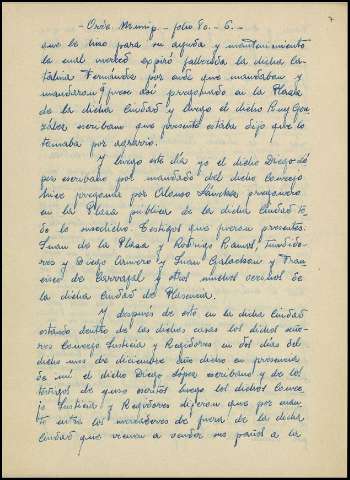 - Orde. Munip. - folio 80. - 6. -
7
que le hizo para su ayuda y mantenimiento
la cual merced expiró fallecida la dicha Ca-
talina Fernández por ende que mandaban y
mandaron q fuese así pregonado en la Plaza
de la dicha Ciudad y luego el dicho Ruy Gon-
zález escribano que presente estaba dijo que lo
tomaba por agravio.
Y luego este día yo el dicho Diego ló-
pez escribano por mandado del dicho Concejo
hice pregonar por Alonso Sánchez pregonero
en la Plaza pública de la dicha Ciudad to-
do lo susodicho. Testigos que fueron presentes.
Juan de la Plaza y Rodrigo Ramos, Tundido-
res y Diego Carnero y Juan y Fran-
cisco de Carvajal y otros muchos vecinos de
la dicha Ciudad de Plasencia.
Y después de esto en la dicha Ciudad
estando dentro de las dichas casas los dichos seño-
res Concejo Justicia y Regidores en dos días del
dicho mes de diciembre año dicho en presencia
de mí el dicho Diego López escribano y de los
testigos de yuso escritos luego los dichos Conce-
jo Justicia y Regidores dijeron que por cuan-
to entre los mercaderes de fuera de la dicha
Ciudad que vienen a vender sus paños a la